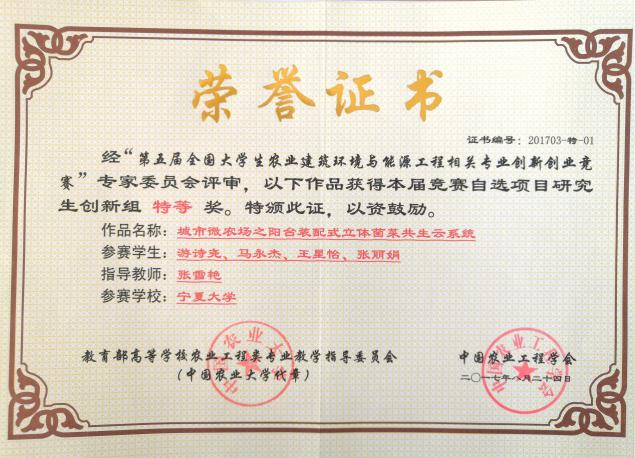 荣誉证书
证书编号：201703-特-01
经“第五届全国大学生农业建筑环境与能源工程相关专业创新创业竞
赛”专家委员会评审，以下作品获得本届竞赛自选项目研究
生创新组 特等 奖。特颁此证，以资鼓励。
作品名称：城市微农场之阳台装配式立体菌菜共生云系统
参赛学生：游诗尧、马永杰、王星怡、张丽娟
指导教师：张雪艳
参赛学校：宁夏大学
教育部高等学校农业工程类专业教学指导委员会
（中国农业大学代章）
中国农业大学
中国农业工程学会
二〇一七年八月二十四日
中国农业工程学会